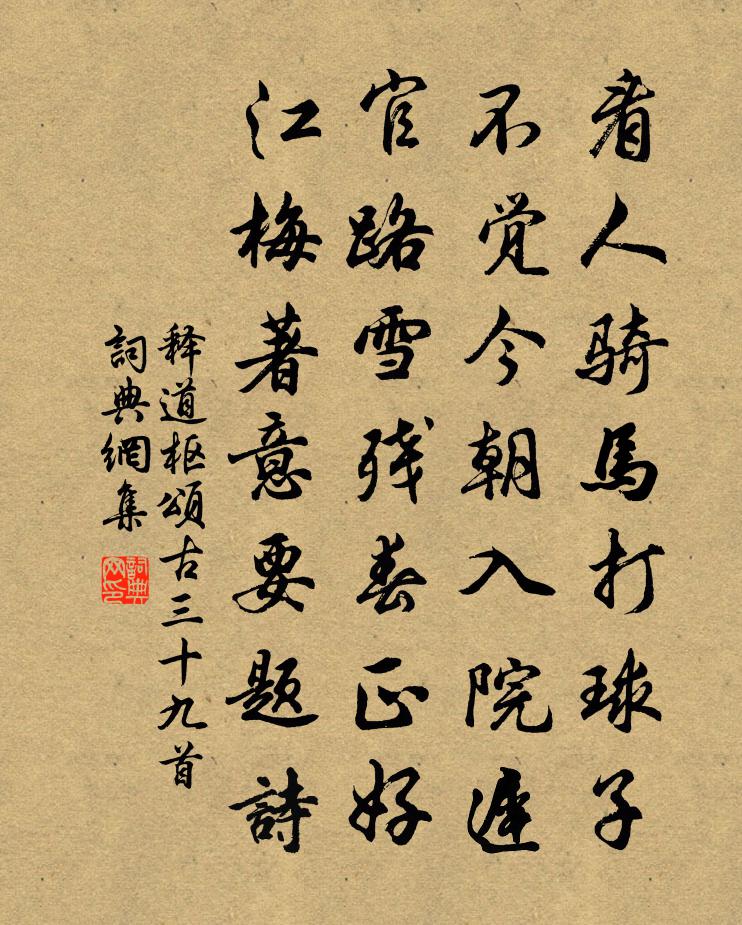 看人骑馬打球子
不觉今朝入院遲
官路雪残春正好
江梅著意要题詩
释道枢頌古三十九首
詞典網集
詞典网印